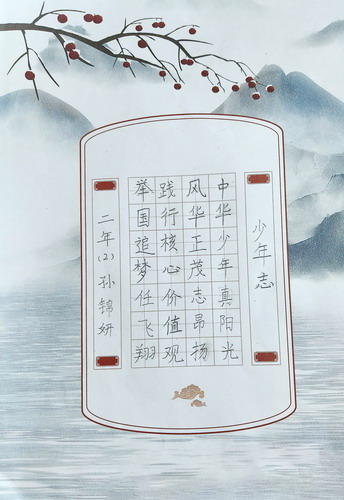 少年志
中华少年真阳光
风华正茂志昂扬
践行核心价值观
举国追梦任飞翔
二年(2)孙锦妍